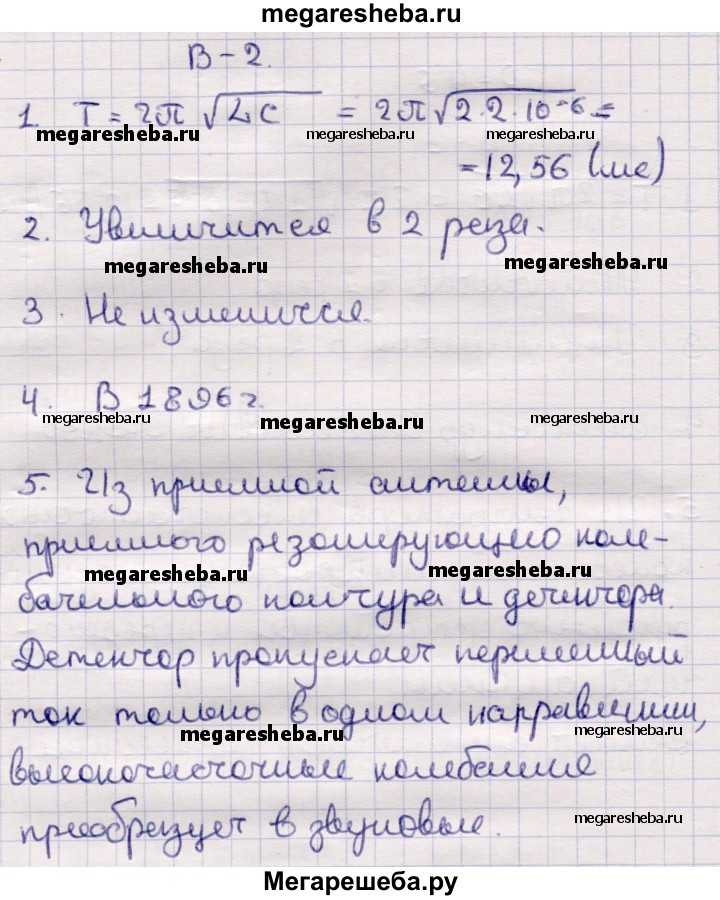 megaresheba.ru
В-2.
1. T = 2π √LC = 2π √2·2·10⁻⁶ =
megaresheba.ru megaresheba.ru megaresheba.ru
= 12,56 (мс)
2. Увеличится в 2 раза.
megaresheba.ru megaresheba.ru
3. Не изменится.
4. В 1896 г.
megaresheba.ru megaresheba.ru megaresheba.ru
5. Из приемной антенны,
приемного резонирующего коле-
megaresheba.ru megaresheba.ru
бательного контура и детектора.
Детектор пропускает переменный
ток только в одном направлении,
megaresheba.ru megaresheba.ru
высокочастотные колебания
преобразует в звуковые.
megaresheba.ru
Мегарешеба.ру